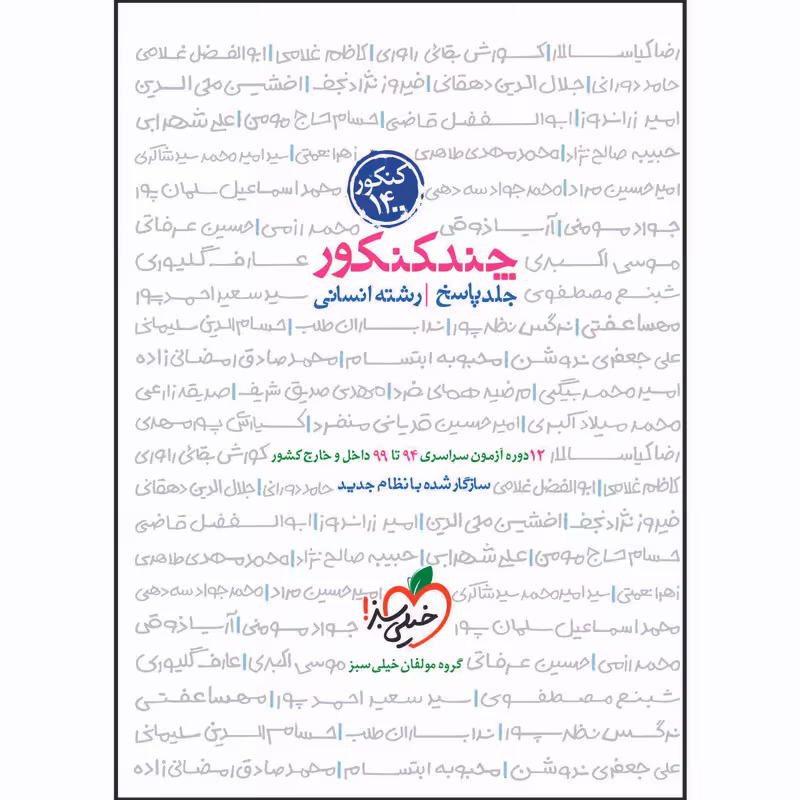 رضا کیاســـالار|کـورش بقائی راوری|کاظم غلامی|ابوالفضل غلامی
حامد دورانی|جلال الدین دهقانی|فیروز نژادنجف|افشین محی الدین
امیر زراندوز|ابوالــفضل قاضی|حسام حاج مومن|علی شهرابی
حبیبه صالح نژاد|محمدمهدی طاهری زهرا نعمتی|سید امیر محمد سید شاکری
امیرحسین مراد|محمد جواد سه دهی محمد اسماعیل سلمان پور
کنکور
۱۴۰۰
جواد مومنی|آریا ذوقی محمد رزمی|حسین عرفاتی
موسی اکبری عارف گلپوری
چند کنکور
شبنع مصطفوی سید سعید احمدپور
جلد پاسخ | رشته انسانی
مهسا عفتی|نرگس نظرپور|ندا بــاران طلب|حسام الدین سلیمانی
علی جعفری ندوشن|محبوبه ابتسام|محمد صادق رمضانی زاده
امیر محمد بیگی|مرضیه همای فرد|مهدی صدیق شریف|صدیقه زارعی
محمد میلاد اکبری|امیرحسین قدیانی منفرد|کـیارش پورمهدی
رضا کیاســـالار ۱۲ دوره آزمون سراسری ۹۴ تا ۹۹ داخل و خارج کشور کورش بقائی راوری
کاظم غلامی|ابوالفضل غلامی سازگار شده با نظام جدید حامد دورانی|جلال الدین دهقانی
فیروز نژادنجف|افشین محی الدین|امیر زراندوز|ابوالــفضل قاضی
حسام حاج مومن|علی شهرابی|حبیبه صالح نژاد|محمدمهدی طاهری
زهرا نعمتی|سید امیر محمد سید شاکری امیرحسین مراد|محمد جواد سه دهی
خیلی سبز!
محمد اسماعیل سلمان پور جواد مومنی|آریا ذوقی
محمد رزمی|حسین عرفاتی گروه مولفان خیلی سبز موسی اکبری|عارف گلپوری
شبنع مصطفوی|سید سعید احمد پور|مهسا عفتی
نرگس نظرپور|ندا بــاران طلب|حسام الدین سلیمانی
علی جعفری ندوشن|محبوبه ابتسام|محمد صادق رمضانی زاده